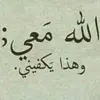 الله مَعي;
وهذا يَكفيني.